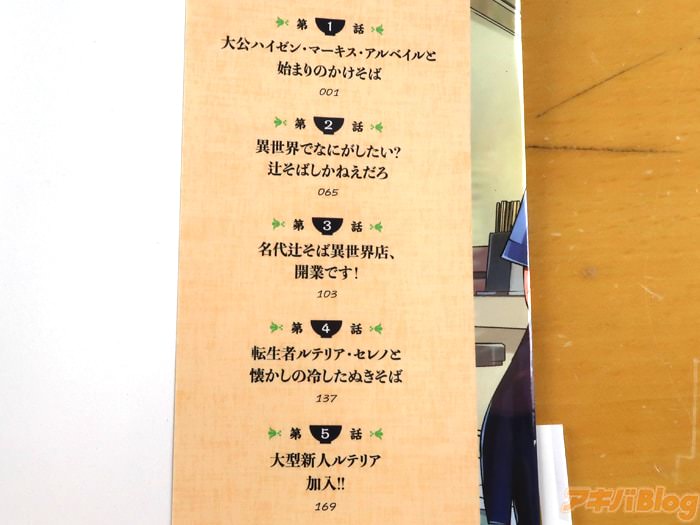 第 1 話
大公ハイゼン・マーキス・アルベイルと
始まりのかけそば
001
第 2 話
異世界でなにがしたい?
辻そばしかねえだろ
065
第 3 話
名代辻そば異世界店、
開業です!
103
第 4 話
転生者ルテリア・セレノと
懐かしの冷したぬきそば
137
第 5 話
大型新人ルテリア
加入!!
169
アキバBlog